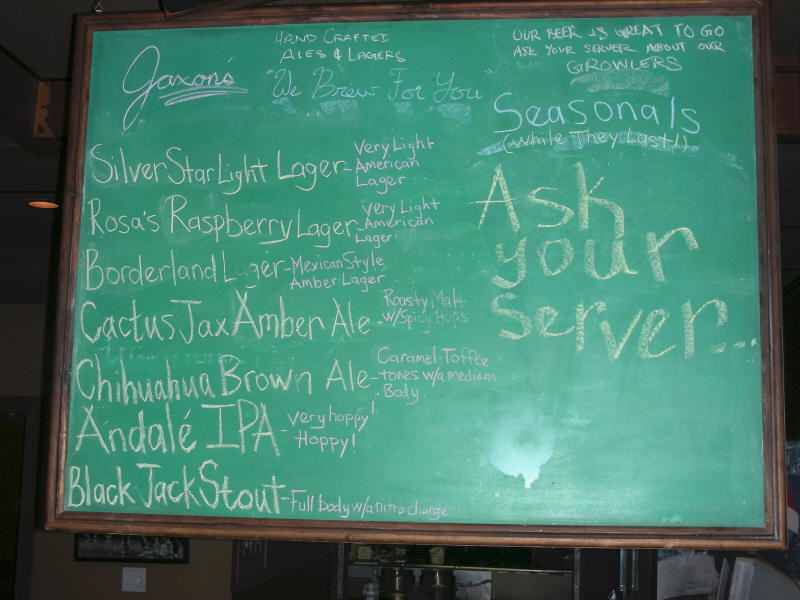 Jaxon's
HAND CRAFTED
ALES & LAGERS
"We Brew For You"
OUR BEER IS GREAT TO GO
ASK YOUR SERVER ABOUT OUR
GROWLERS
Seasonals
(While They Last!)
Ask
your
server...
Silver Star Light Lager - Very Light
American
Lager
Rosa's Raspberry Lager - Very Light
American
Lager
Borderland L ger - Mexican Style
Amber Lager
Cactus Jax Amber Ale - Roasty Malt
w/Spicy Hops
Chihuahua Brown Ale - Caramel-Toffee
tones w/a medium
Body
Andalé IPA - Very hoppy!
Hoppy!
Black Jack Stout - Full body w/a nitro charge